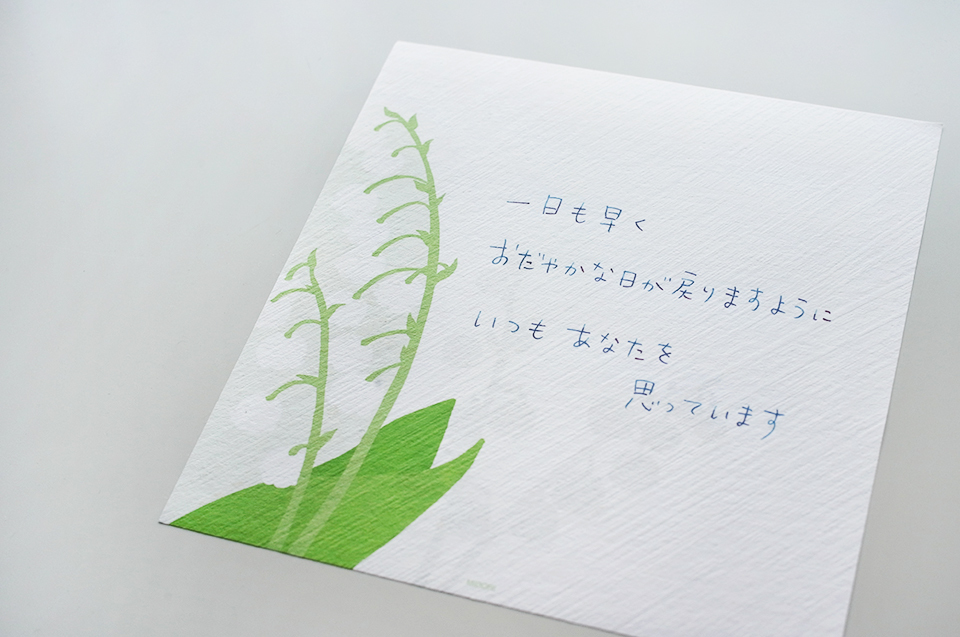 一日も早く
おだやかな日が戻りますように
いつも あなたを
思っています